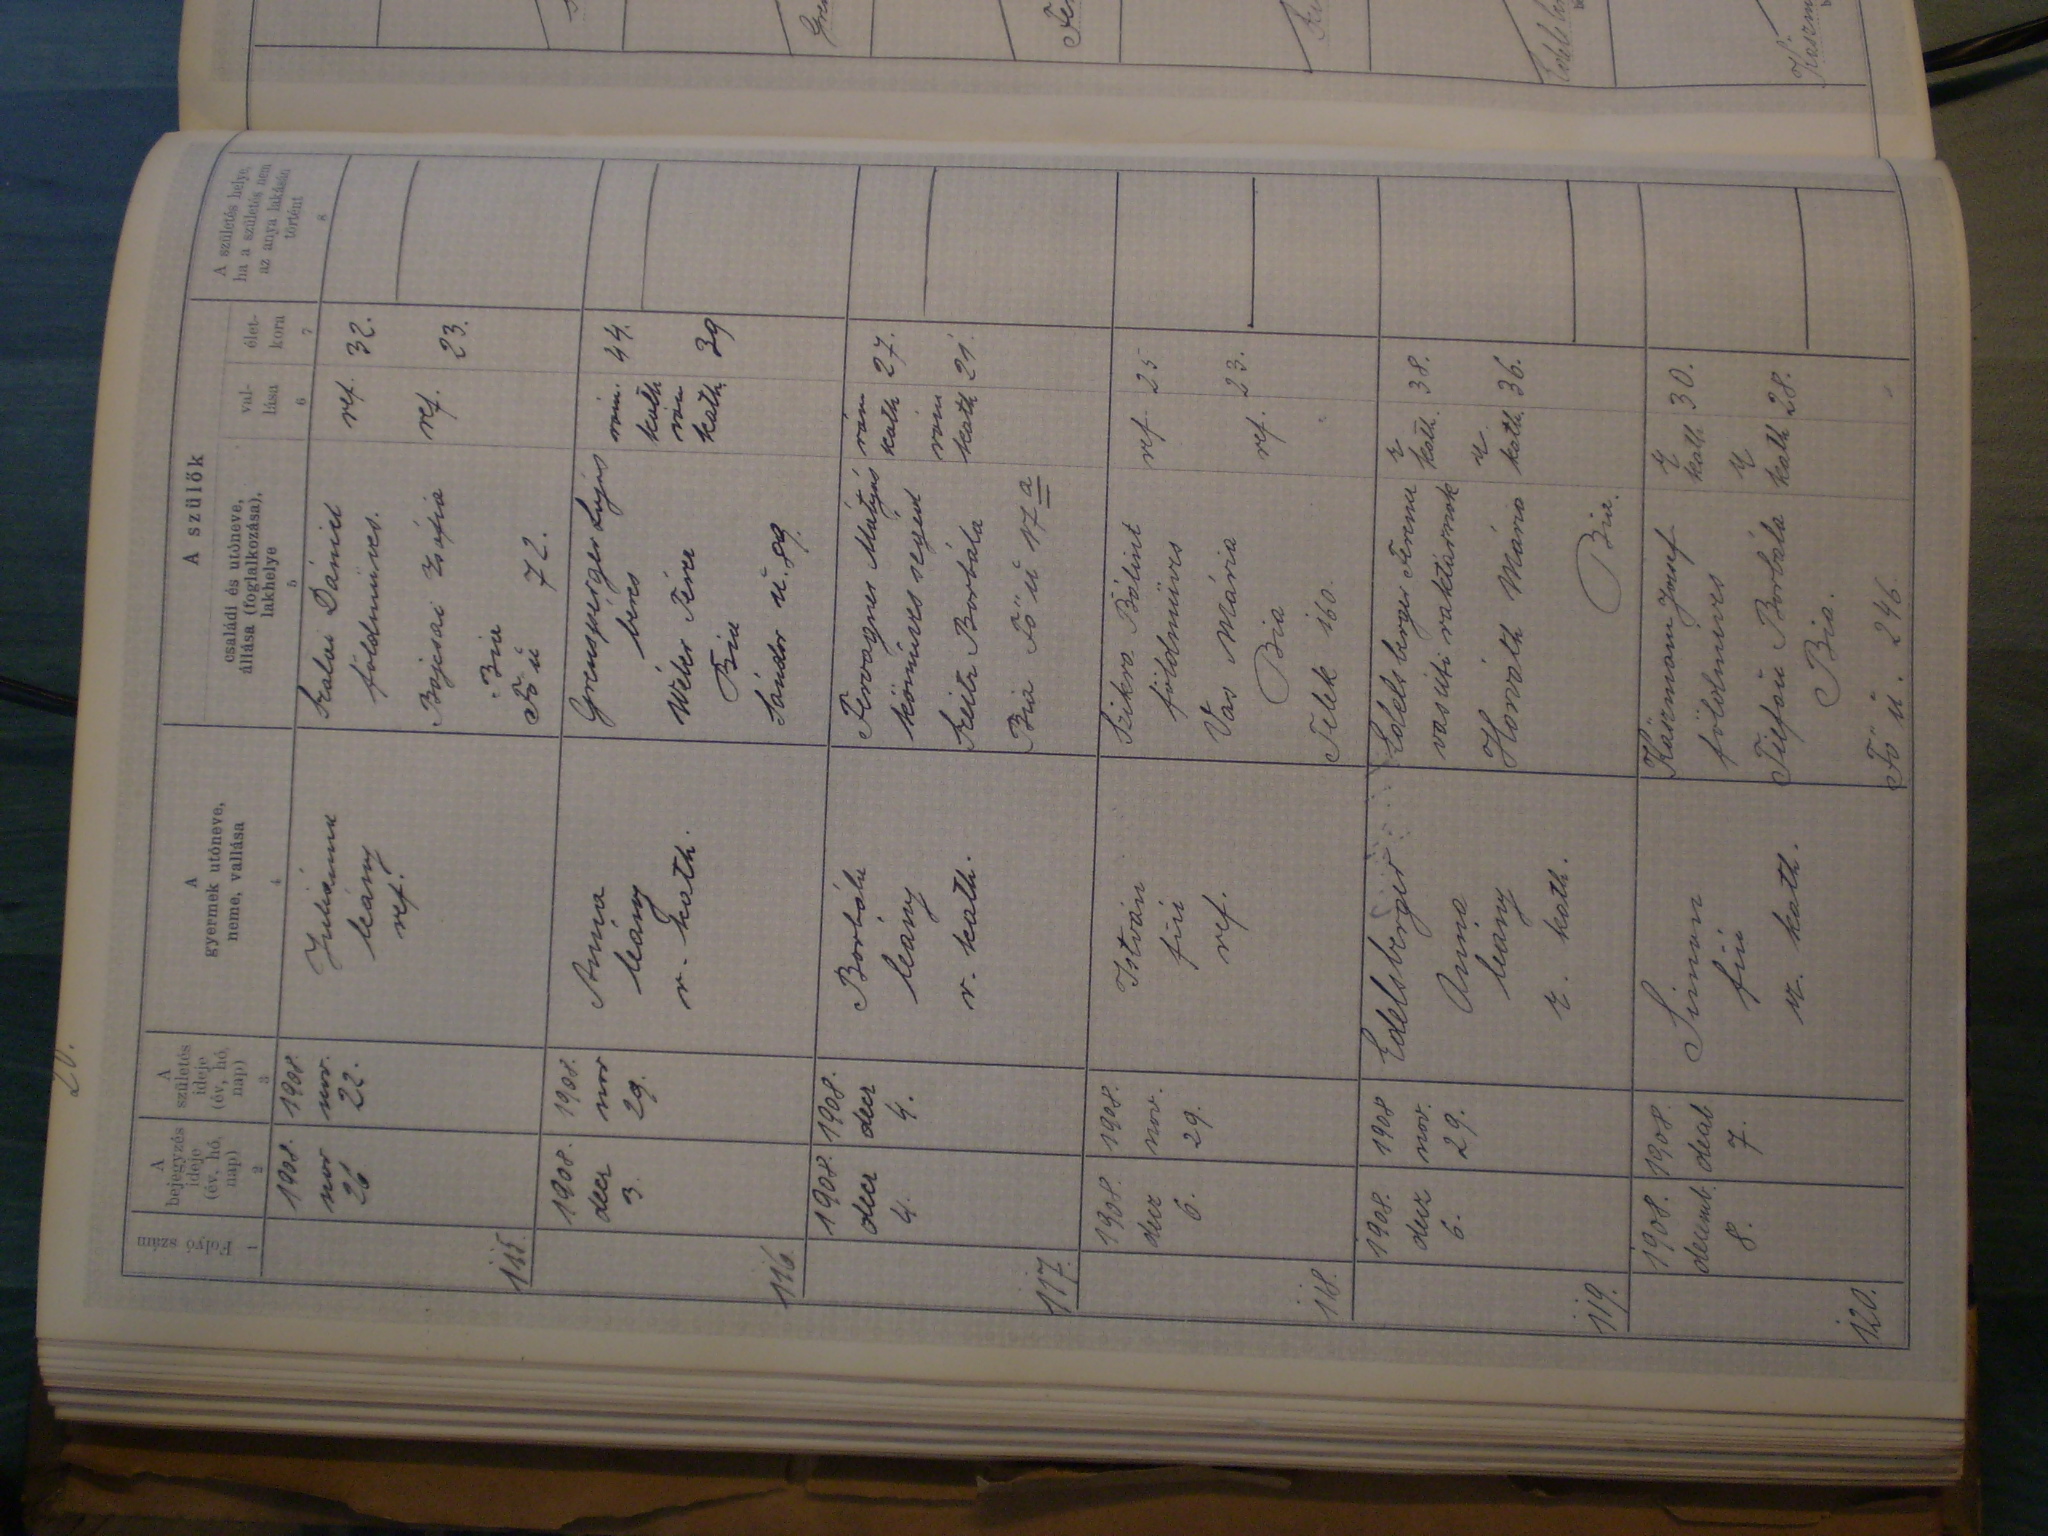 20.
Folyó szám
1
A
bejegyzés
ideje
(év, hó,
nap)
2
A
születés
ideje
(év, hó,
nap)
3
A
gyermek utóneve,
neme, vallása
4
A szülők
családi és utóneve,
állása (foglalkozása),
lakhelye
5
val-
lása
6
élet-
kora
7
A születés helye,
ha a születés nem
az anya lakásán
történt
8
115.
1908.
nov
26
1908.
nov.
22.
Juliánna
leány
ref.
Szalai Dániel
földmüves.
Zsófia
Bia
Fő u
72.
ref. 32.
ref. 23.
116.
1908.
decz
3.
1908.
nov
29.
Anna
leány
r. kath.
Grenspérger Lajos
béres
Wéber Teréz
Bia
Sándor u. 89.
róm. 44.
kath
róm
kath. 39
117.
1908.
decz
4.
1908.
decz
4.
Borbála
leány
r. kath.
Fervagner Mátyás
kömüves segéd
Borbála
Bia Fő u 17 a
róm
kath 27.
róm
kath 21.
118.
1908.
decz
6.
1908.
nov.
29.
István
fiú
ref.
Szikra Bálint
földmüves
Vas Mária
Bia
Telek 160.
ref 25
ref. 23.
119.
1908.
decz
6.
1908
nov.
29.
Edelsberger
Anna
leány
r. kath.
Edelsberger Ferenc
vasúti raktárnok
Horváth Mária
Bia.
r
kath. 38.
r
kath. 36.
120.
1908.
decemb.
8.
1908.
deczb
7.
Simon
fiú
r. kath.
Kázmann József
földmives
Borbála
Bia.
Fő u. 246.
r
kath 30.
r
kath 28.